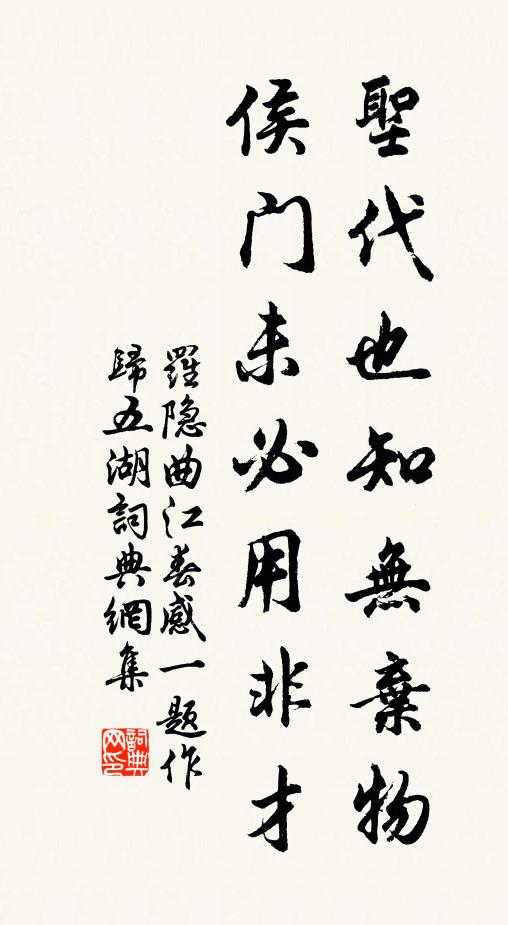 聖代也知無棄物
侯門未必用非才
羅隐曲江春感一題作
歸五湖詞典網集
詞典
网印